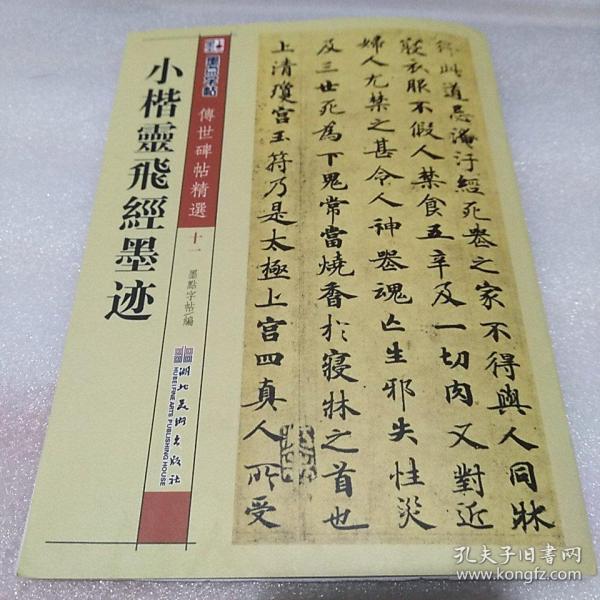 小楷靈飛經墨迹
墨点字帖
傳世碑帖精選
十一
墨點字帖/編
湖北美术出版社
HUBEI FINE ARTS PUBLISHING HOUSE
行此道忌淹汙經死喪之家不得與人同牀
寢衣服不假人禁食五辛及一切肉又對近
婦人尤禁之甚令人神喪魂亡生邪失性災
及三世死為下鬼常當燒香於寢牀之首也
上清瓊宮玉符乃是太極上宮四真人所受
孔夫子旧书网
www.kongfz.com